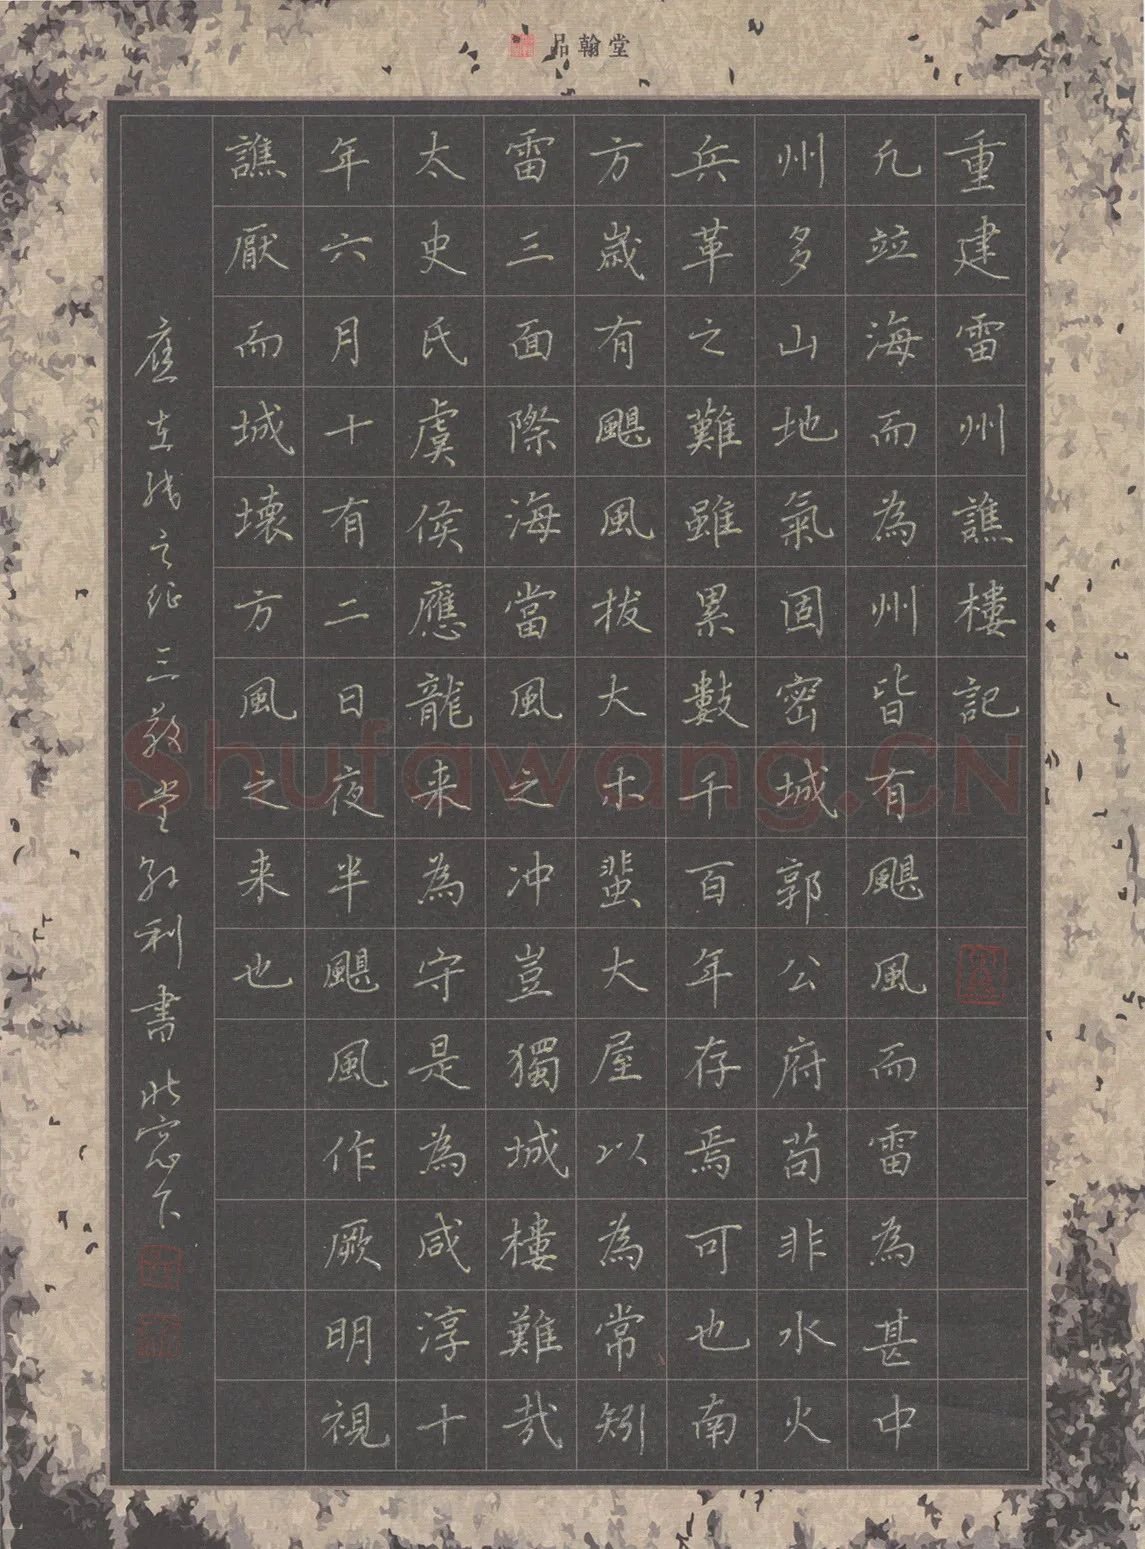 品翰堂
重建雷州譙樓記
凡竝海而為州皆有颶風而雷為甚中
州多山地氣固密城郭公府苟非水火
兵革之難雖累數千百年存焉可也南
方歲有颶風拔大木蜚大屋以為常矧
雷三面際海當風之冲豈獨城樓難哉
太史氏虞侯應龍来為守是為咸淳十
年六月十有二日夜半颶風作厥明視
譙厭而城壞方風之来也
應志強之征三敬堂 利書 窓下
Shufawang.CN